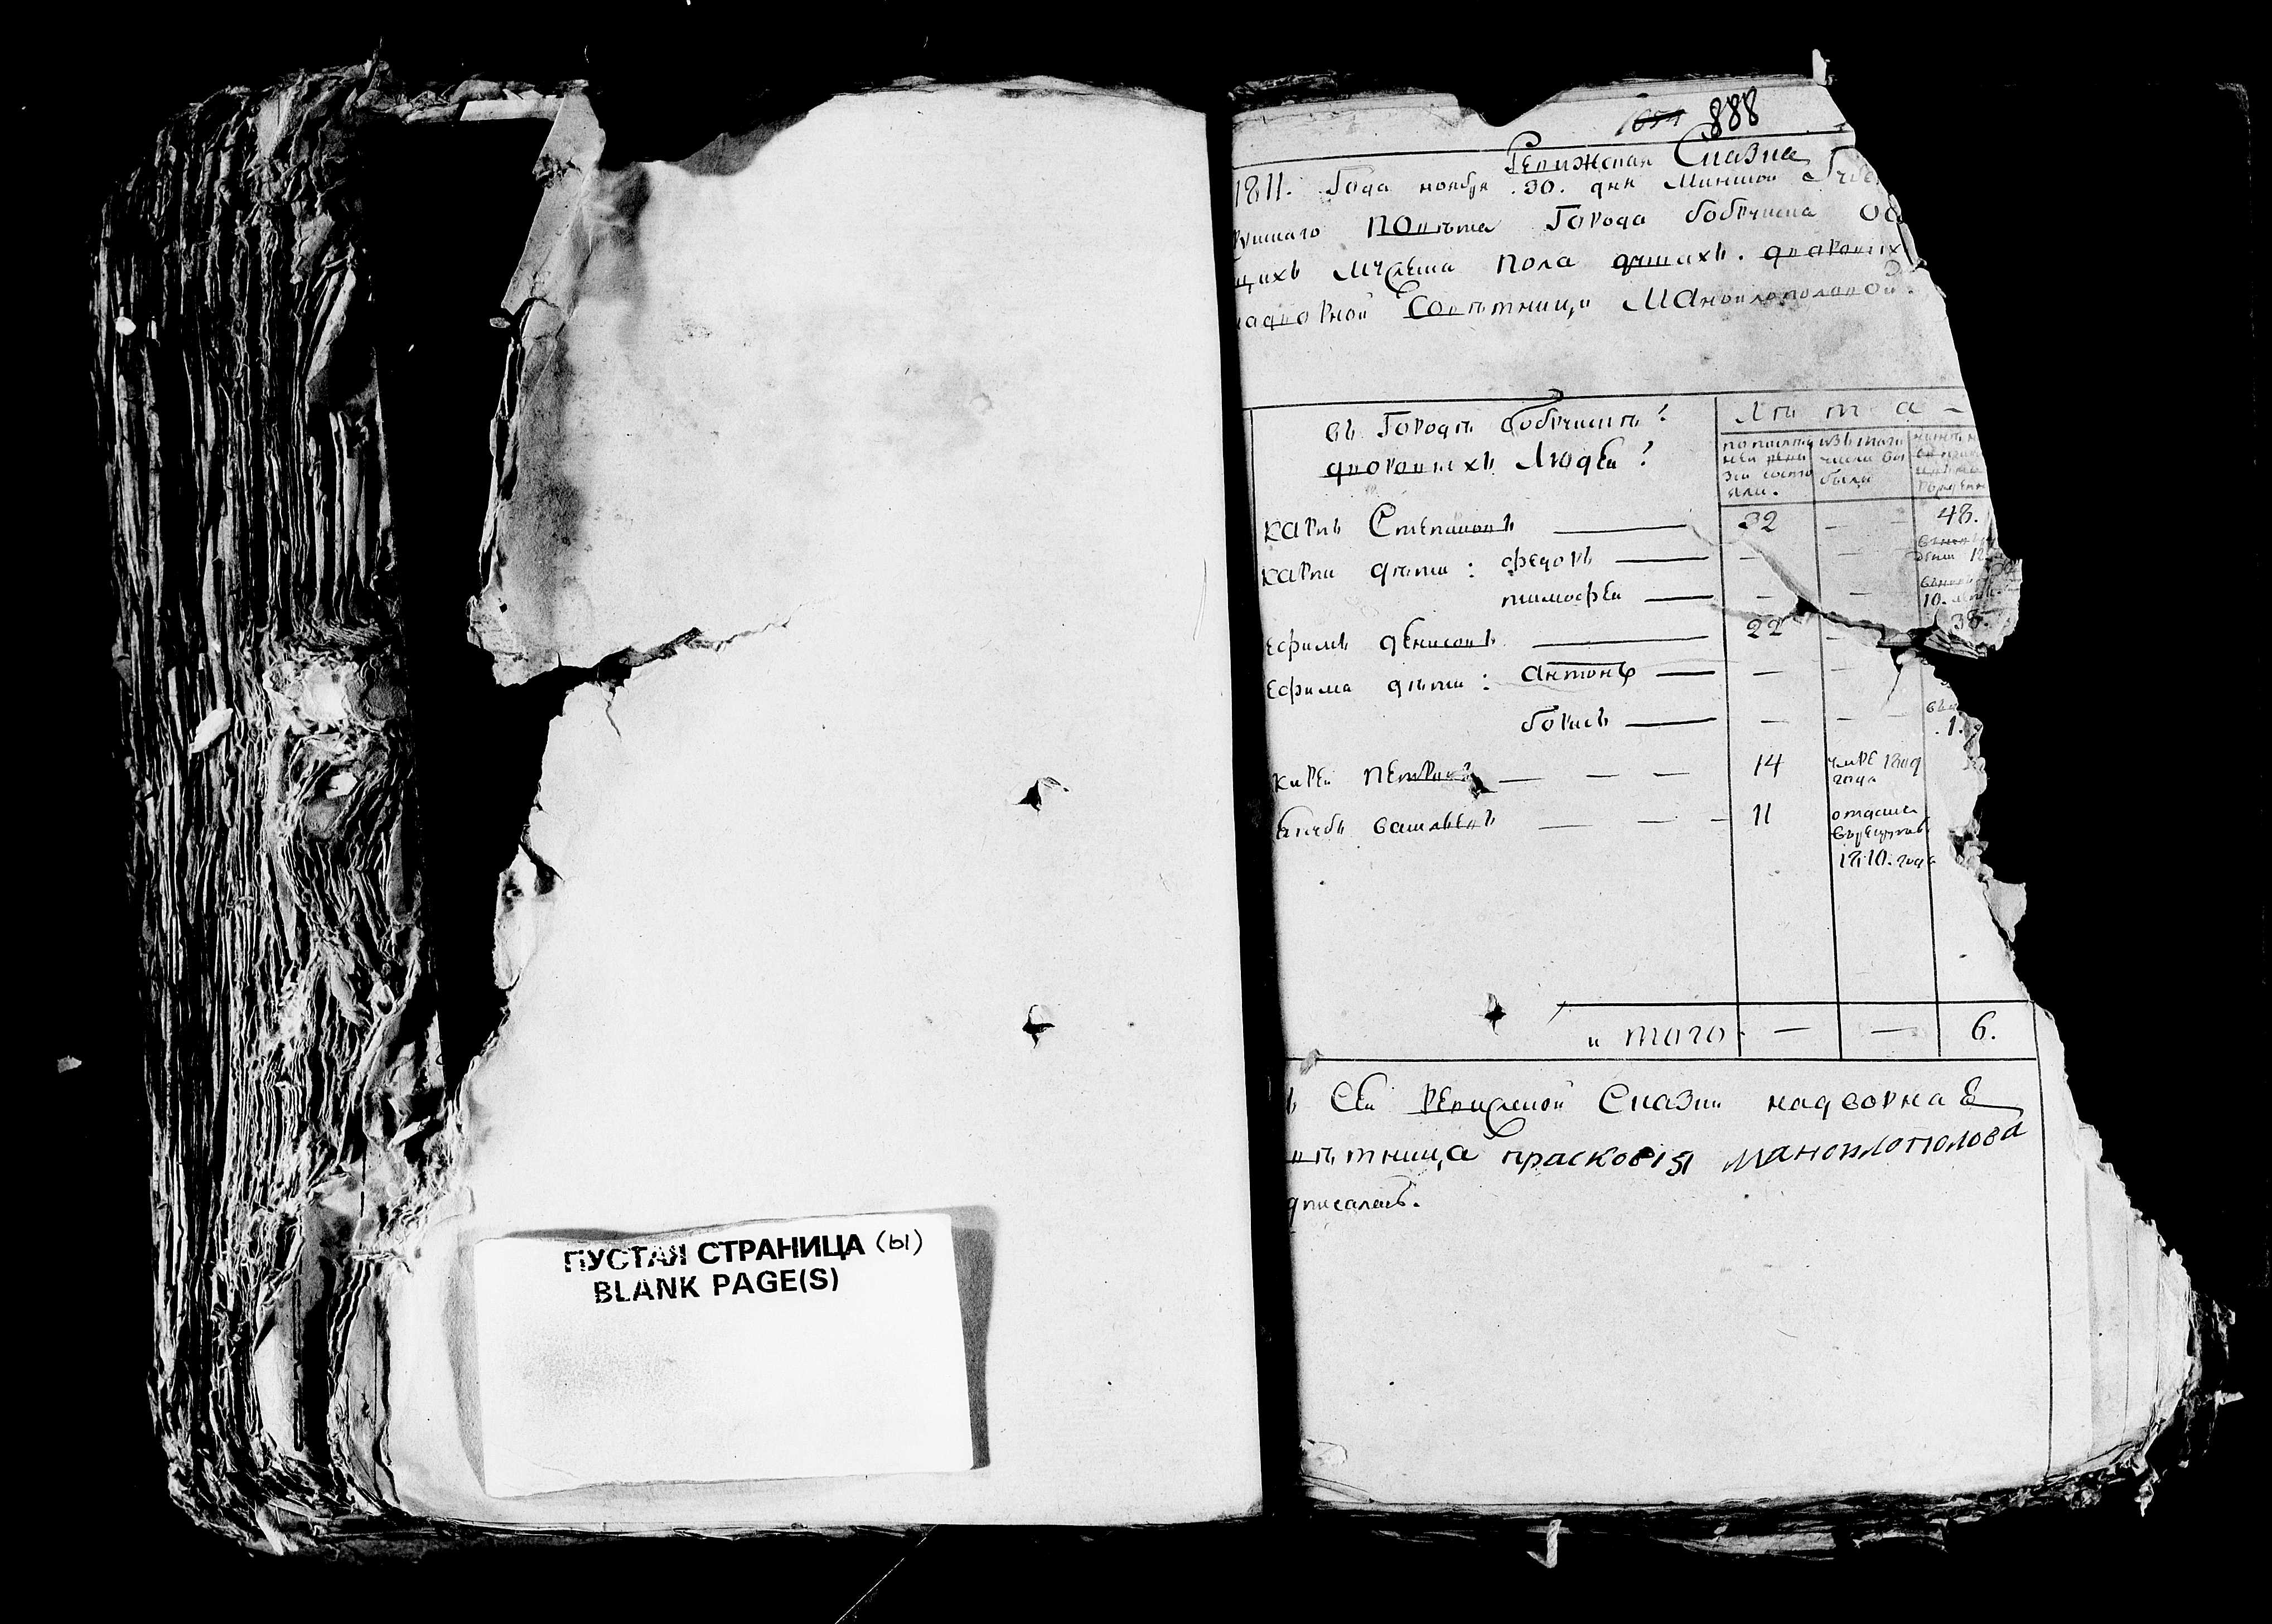 ПУСТАЯ СТРАНИЦА (ы)
BLANK PAGE(S)
888
Ревижская Сказка
1811. Года ноября .30. дня Минской Губе
Повѣта Города бобруиска
щихъ мужеска пола душахъ. дворовыхъ
надворной Совѣтници Маноилополовой.
въ Городѣ бобруискѣ!
дворовыхъ Людей!
Лѣта
по последней ревизіи состояли.
изъ того числа выбыли
карпъ Степановъ 32 — 48.
карпа дѣти: федоръ — —
тимофеи — — 10.
ефимъ денисовъ 22 —
ефима дѣти: антонъ — —
борисъ — — 1.
кирей петровъ 14 умре 1809 года
якубъ васильевъ 11 отданъ въ рекруты 1810. года
и того — — 6.
Сей ревижской Сказки надворная
вѣтница прасковія маноилополова
дписалась.